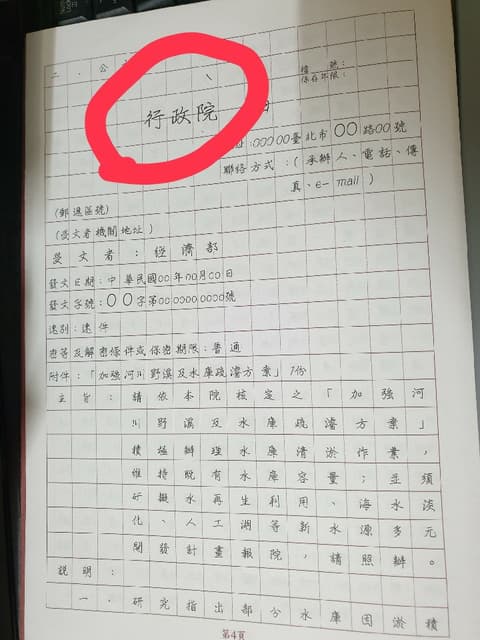 二、公
檔號：
保存年限：
行政院
址：00000臺北市〇〇路00號
聯絡方式：(承辦人、電話、傳
真、e-mail)
(郵遞區號)
(受文者機關地址)
受文者：經濟部
發文日期：中華民國00年00月00日
發文字號：〇〇字第0000000000號
速別：速件
密等及解密條件或保密期限：普通
附件：「加強河川野溪及水庫疏濬方案」1份
主旨：請依本院核定之「加強河
川野溪及水庫疏濬方案」
積極辦理水庫清淤作業，
維持既有水庫容量；並須
研擬水再生利用、海水淡
化、人工湖等新水源多元
開發計畫報院，請照辦。
說明：
一、研究指出部分水庫因淤積
第4頁